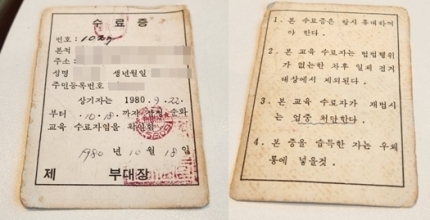 수료증
번호: 1027
본적
주소:
성명 생년월일
주민등록번호
상기자는 1980. 9. 22.
부터 10. 18. 까지 순화
교육 수료자임을
1980 년 10 월 18 일
제 부대장
1. 본 수료증은 항시 휴대하여
야 한다.
2. 본 교육 수료자는 범법행위
가 없는한 차후 일체 검거
대상에서 제외된다.
3. 본 교육 수료자가 재범시
는 엄중 처단한다.
4. 본 증을 습득한 자는 우체
통에 넣을것.